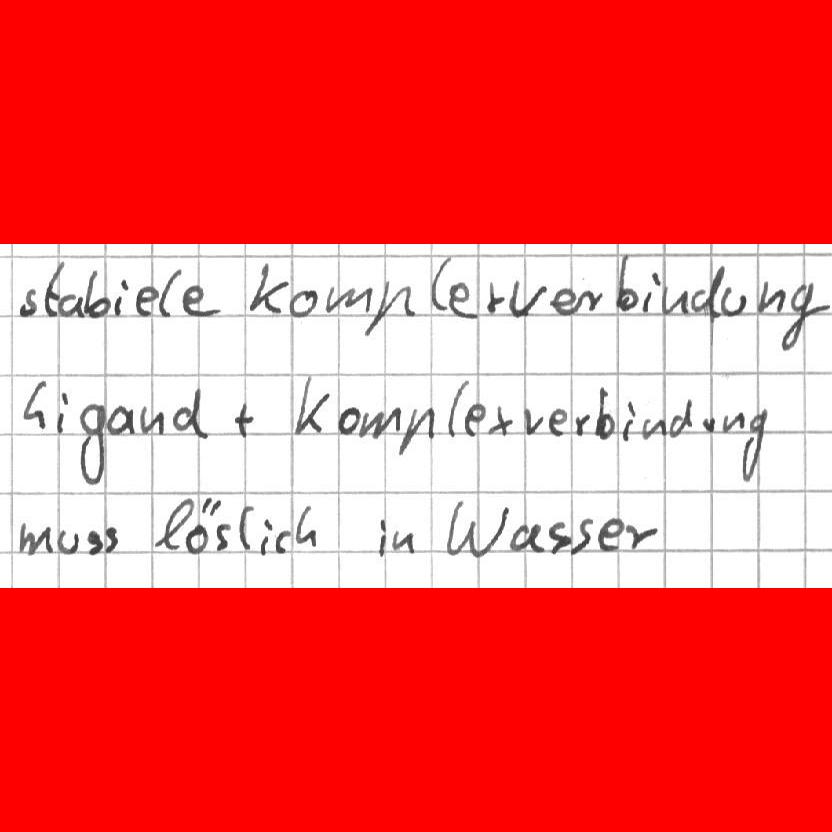 stabiele Komplexverbindung
Ligand + Komplexverbindung
muss löslich in Wasser